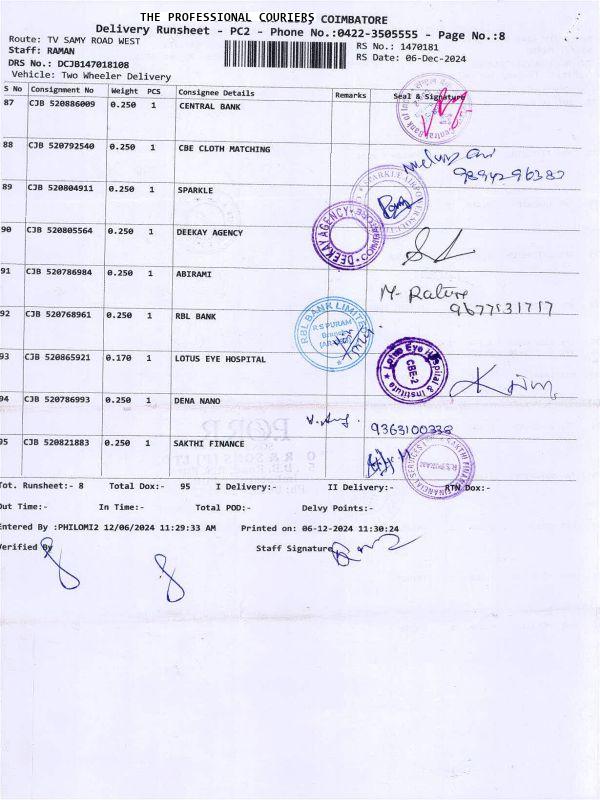 THE PROFESSIONAL COURIERS COIMBATORE
Delivery Runsheet - PC2 - Phone No.:0422-3505555 - Page No.:8
Route: TV SAMY ROAD WEST
RS No.: 1470181
Staff: RAMAN
RS Date: 06-Dec-2024
DRS No.: DCJB147018108
Vehicle: Two Wheeler Delivery
S No Consignment No Weight PCS Consignee Details Remarks Seal & Signature
87 CJB 520886009 0.250 1 CENTRAL BANK
88 CJB 520792540 0.250 1 CBE CLOTH MATCHING
9894296382
89 CJB 520804911 0.250 1 SPARKLE
90 CJB 520805564 0.250 1 DEEKAY AGENCY
DEEKAY AGENCY
91 CJB 520786984 0.250 1 ABIRAMI
9677131717
92 CJB 520768961 0.250 1 RBL BANK
RBL BANK LIMITED
R S PURAM
93 CJB 520865921 0.170 1 LOTUS EYE HOSPITAL
Lotus Eye Hospital & Institute
CBE-2
94 CJB 520786993 0.250 1 DENA NANO
9363100338
95 CJB 520821883 0.250 1 SAKTHI FINANCE
Tot. Runsheet:- 8 Total Dox:- 95 I Delivery:- II Delivery:- RTN Dox:-
Out Time:- In Time:- Total POD:- Delvy Points:-
Entered By :PHILOMI2 12/06/2024 11:29:33 AM Printed on: 06-12-2024 11:30:24
Verified By Staff Signature